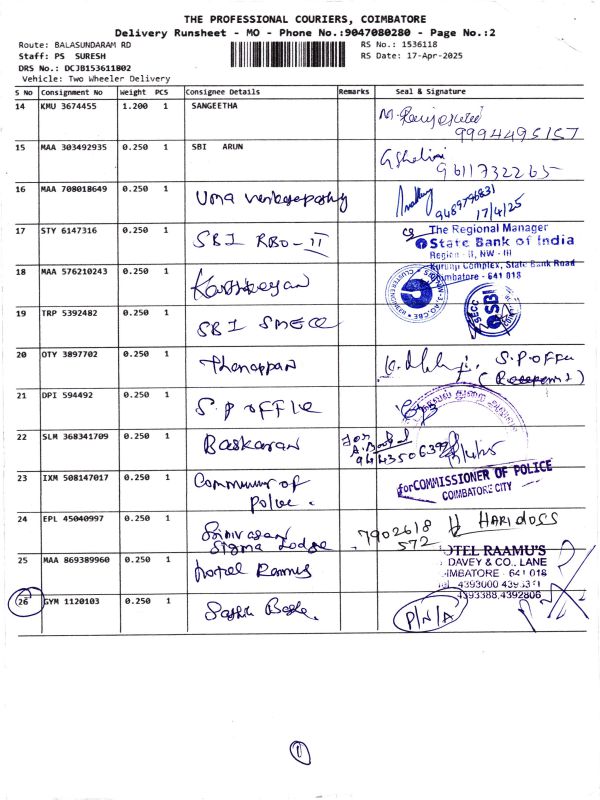 THE PROFESSIONAL COURIERS, COIMBATORE
Delivery Runsheet - MO - Phone No.:9047080280 - Page No.:2
Route: BALASUNDARAM RD
RS No.: 1536118
Staff: PS SURESH
RS Date: 17-Apr-2025
DRS No.: DCJB153611802
Vehicle: Two Wheeler Delivery
S No Consignment No Weight PCS Consignee Details Remarks Seal & Signature
14 KMU 3674455 1.200 1 SANGEETHA
9994495157
15 MAA 303492935 0.250 1 SBI ARUN
9611732265
16 MAA 708018649 0.250 1 Uma
9489796831
17/4/25
17 STY 6147316 0.250 1 SBI RBO-II
The Regional Manager
State Bank of India
Region - II, NW - III
Kurunji Complex, State Bank Road
Coimbatore - 641 018
18 MAA 576210243 0.250 1 Karthikeyan
19 TRP 5392482 0.250 1 SBI SMECC
SECC SBI
20 OTY 3897702 0.250 1 Thenappan
S.P office
21 DPI 594492 0.250 1 S.P office
22 SLM 368341709 0.250 1 Baskaran
for
23 IXM 508147017 0.250 1 Commissioner of
Police.
for COMMISSIONER OF POLICE
COIMBATORE CITY
24 EPL 45040997 0.250 1 Srinivasan
Sigma Lodge
7902618 HARIDOSS
572
25 MAA 869389960 0.250 1 Hotel Raamus
HOTEL RAAMU'S
DAVEY & CO., LANE
COIMBATORE - 641 018
4393388, 4392806
26 GYM 1120103 0.250 1
P/N/A
1